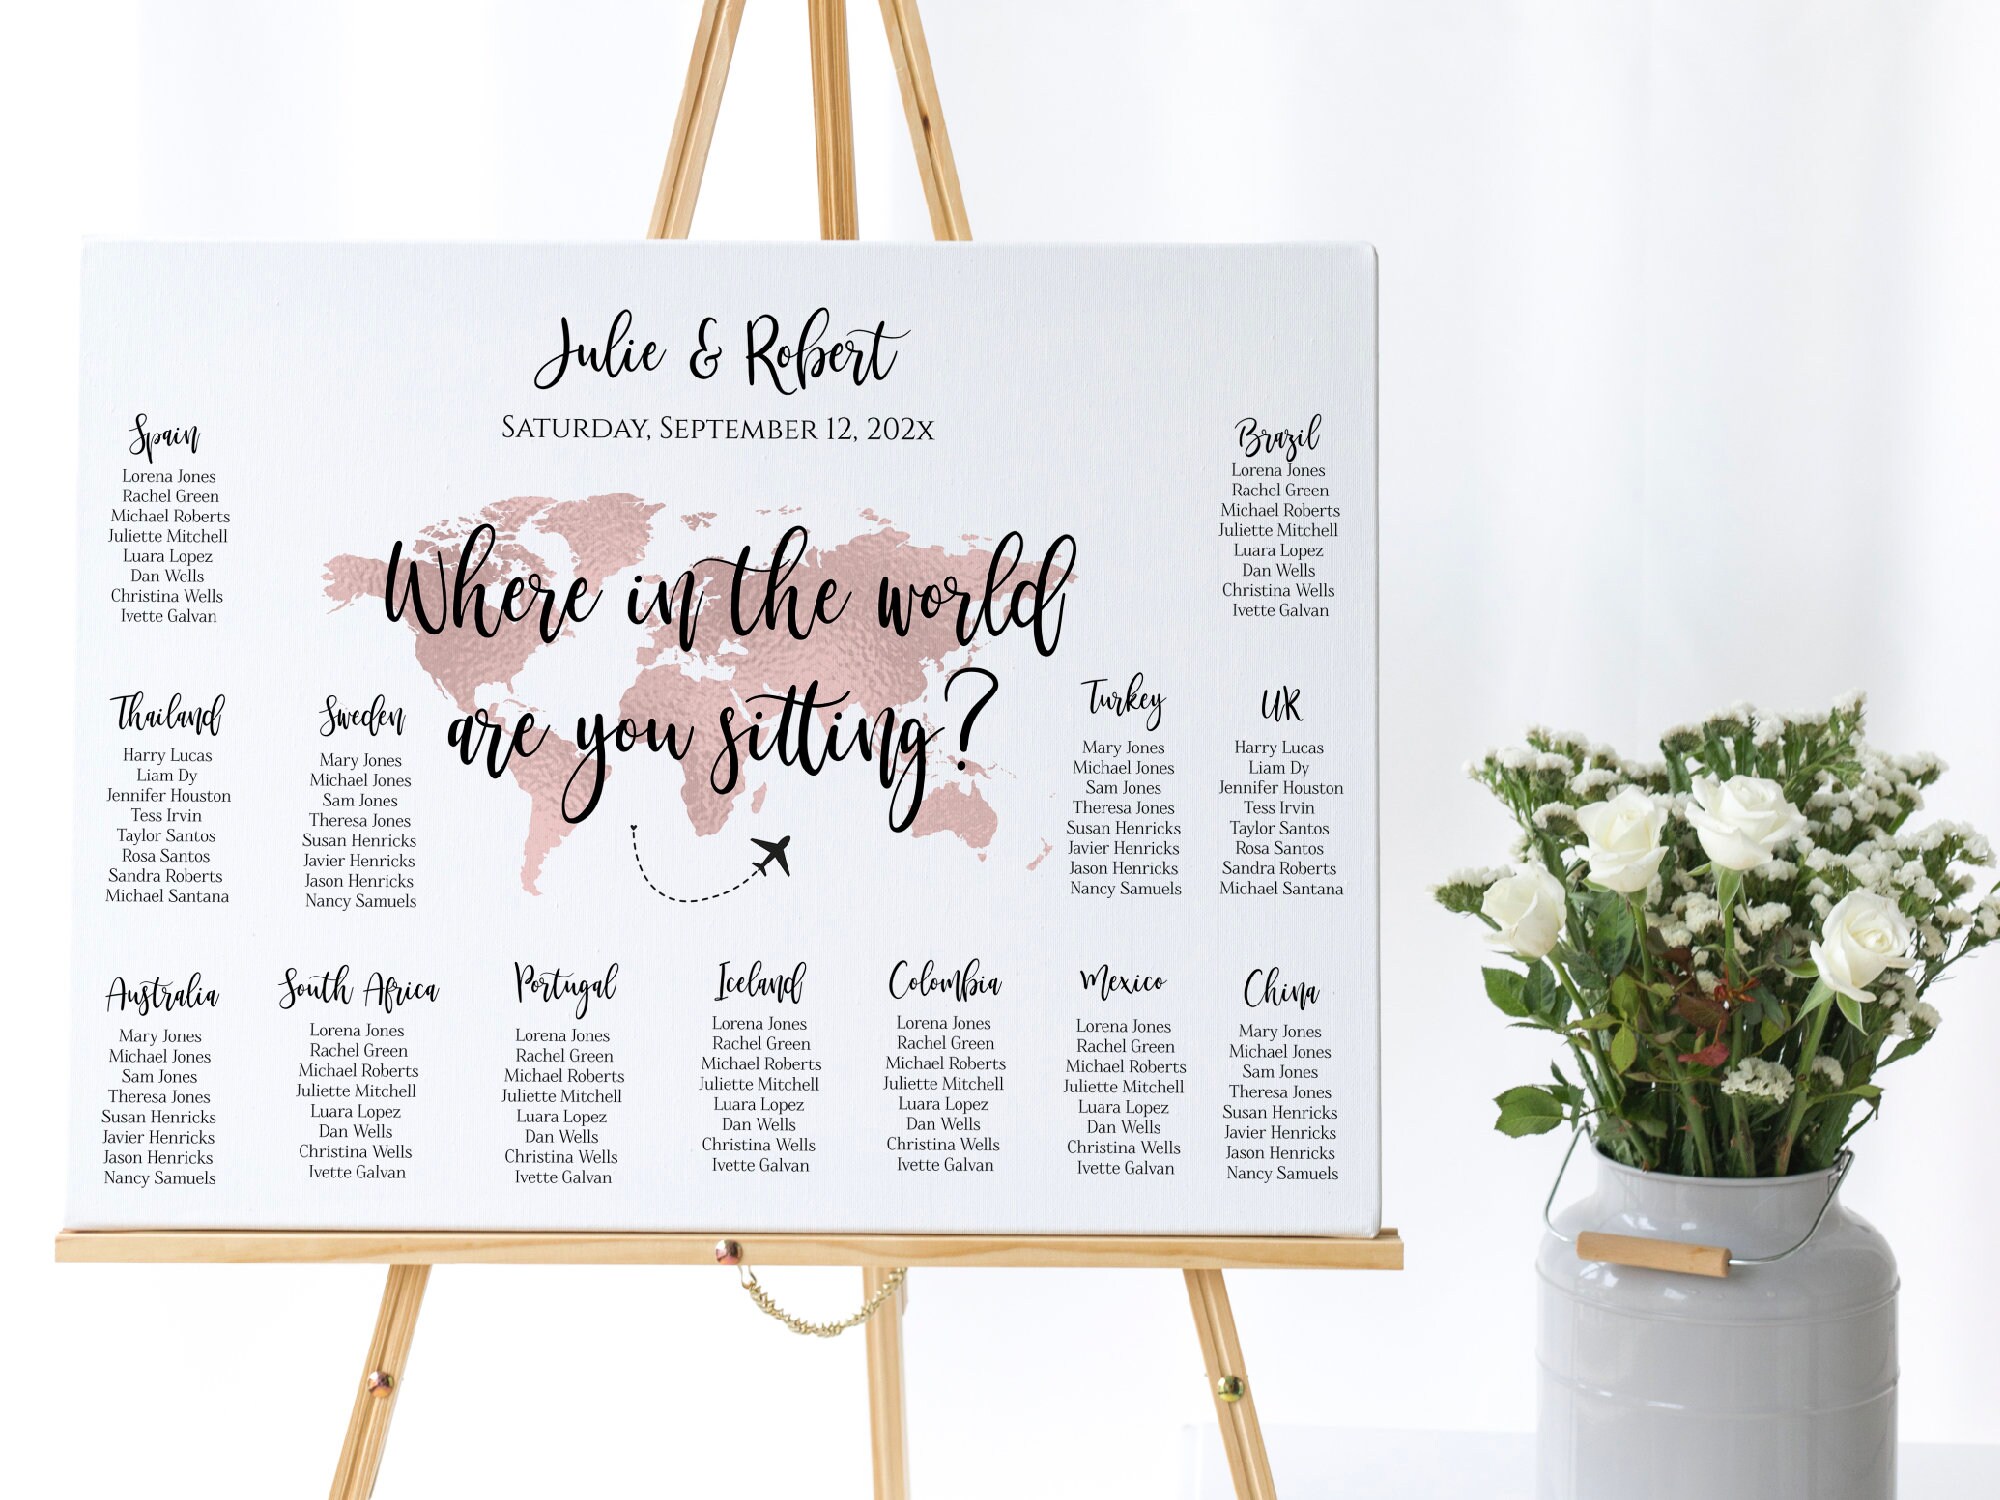 Julie & Robert
Saturday, September 12, 202x
Where in the world
are you sitting?
Spain
Lorena Jones
Rachel Green
Michael Roberts
Juliette Mitchell
Luara Lopez
Dan Wells
Christina Wells
Ivette Galvan
Brazil
Lorena Jones
Rachel Green
Michael Roberts
Juliette Mitchell
Luara Lopez
Dan Wells
Christina Wells
Ivette Galvan
Thailand
Harry Lucas
Liam Dy
Jennifer Houston
Tess Irvin
Taylor Santos
Rosa Santos
Sandra Roberts
Michael Santana
Sweden
Mary Jones
Michael Jones
Sam Jones
Theresa Jones
Susan Henricks
Javier Henricks
Jason Henricks
Nancy Samuels
Turkey
Mary Jones
Michael Jones
Sam Jones
Theresa Jones
Susan Henricks
Javier Henricks
Jason Henricks
Nancy Samuels
UK
Harry Lucas
Liam Dy
Jennifer Houston
Tess Irvin
Taylor Santos
Rosa Santos
Sandra Roberts
Michael Santana
Australia
Mary Jones
Michael Jones
Sam Jones
Theresa Jones
Susan Henricks
Javier Henricks
Jason Henricks
Nancy Samuels
South Africa
Lorena Jones
Rachel Green
Michael Roberts
Juliette Mitchell
Luara Lopez
Dan Wells
Christina Wells
Ivette Galvan
Portugal
Lorena Jones
Rachel Green
Michael Roberts
Juliette Mitchell
Luara Lopez
Dan Wells
Christina Wells
Ivette Galvan
Iceland
Lorena Jones
Rachel Green
Michael Roberts
Juliette Mitchell
Luara Lopez
Dan Wells
Christina Wells
Ivette Galvan
Colombia
Lorena Jones
Rachel Green
Michael Roberts
Juliette Mitchell
Luara Lopez
Dan Wells
Christina Wells
Ivette Galvan
Mexico
Lorena Jones
Rachel Green
Michael Roberts
Juliette Mitchell
Luara Lopez
Dan Wells
Christina Wells
Ivette Galvan
China
Mary Jones
Michael Jones
Sam Jones
Theresa Jones
Susan Henricks
Javier Henricks
Jason Henricks
Nancy Samuels